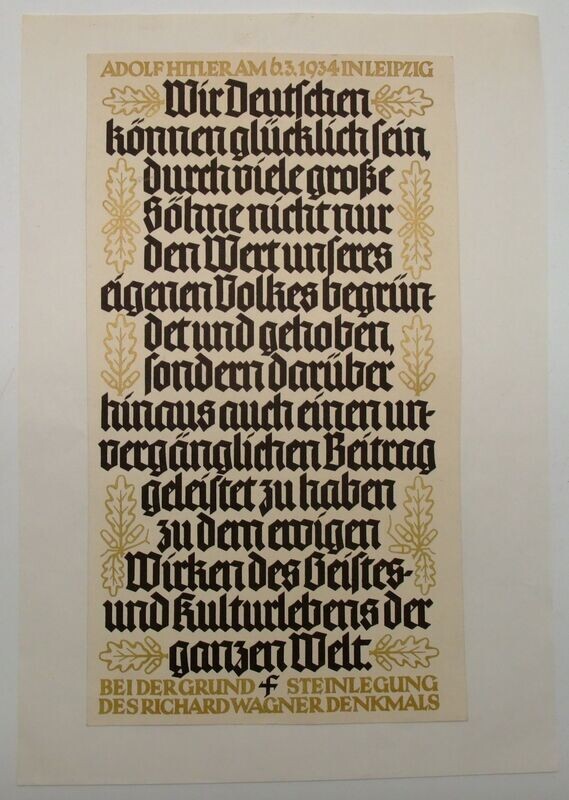 ADOLF HITLER AM 6.3.1934 IN LEIPZIG
Wir Deutschen
können glücklich sein,
durch viele große
Söhne nicht nur
den Wert unseres
eigenen Volkes begrün-
det und gehoben,
sondern darüber
hinaus auch einen un-
vergänglichen Beitrag
geleistet zu haben
zu dem ewigen
Wirken des Geistes-
und Kulturlebens der
ganzen Welt.
BEI DER GRUND STEINLEGUNG
DES RICHARD WAGNER DENKMALS